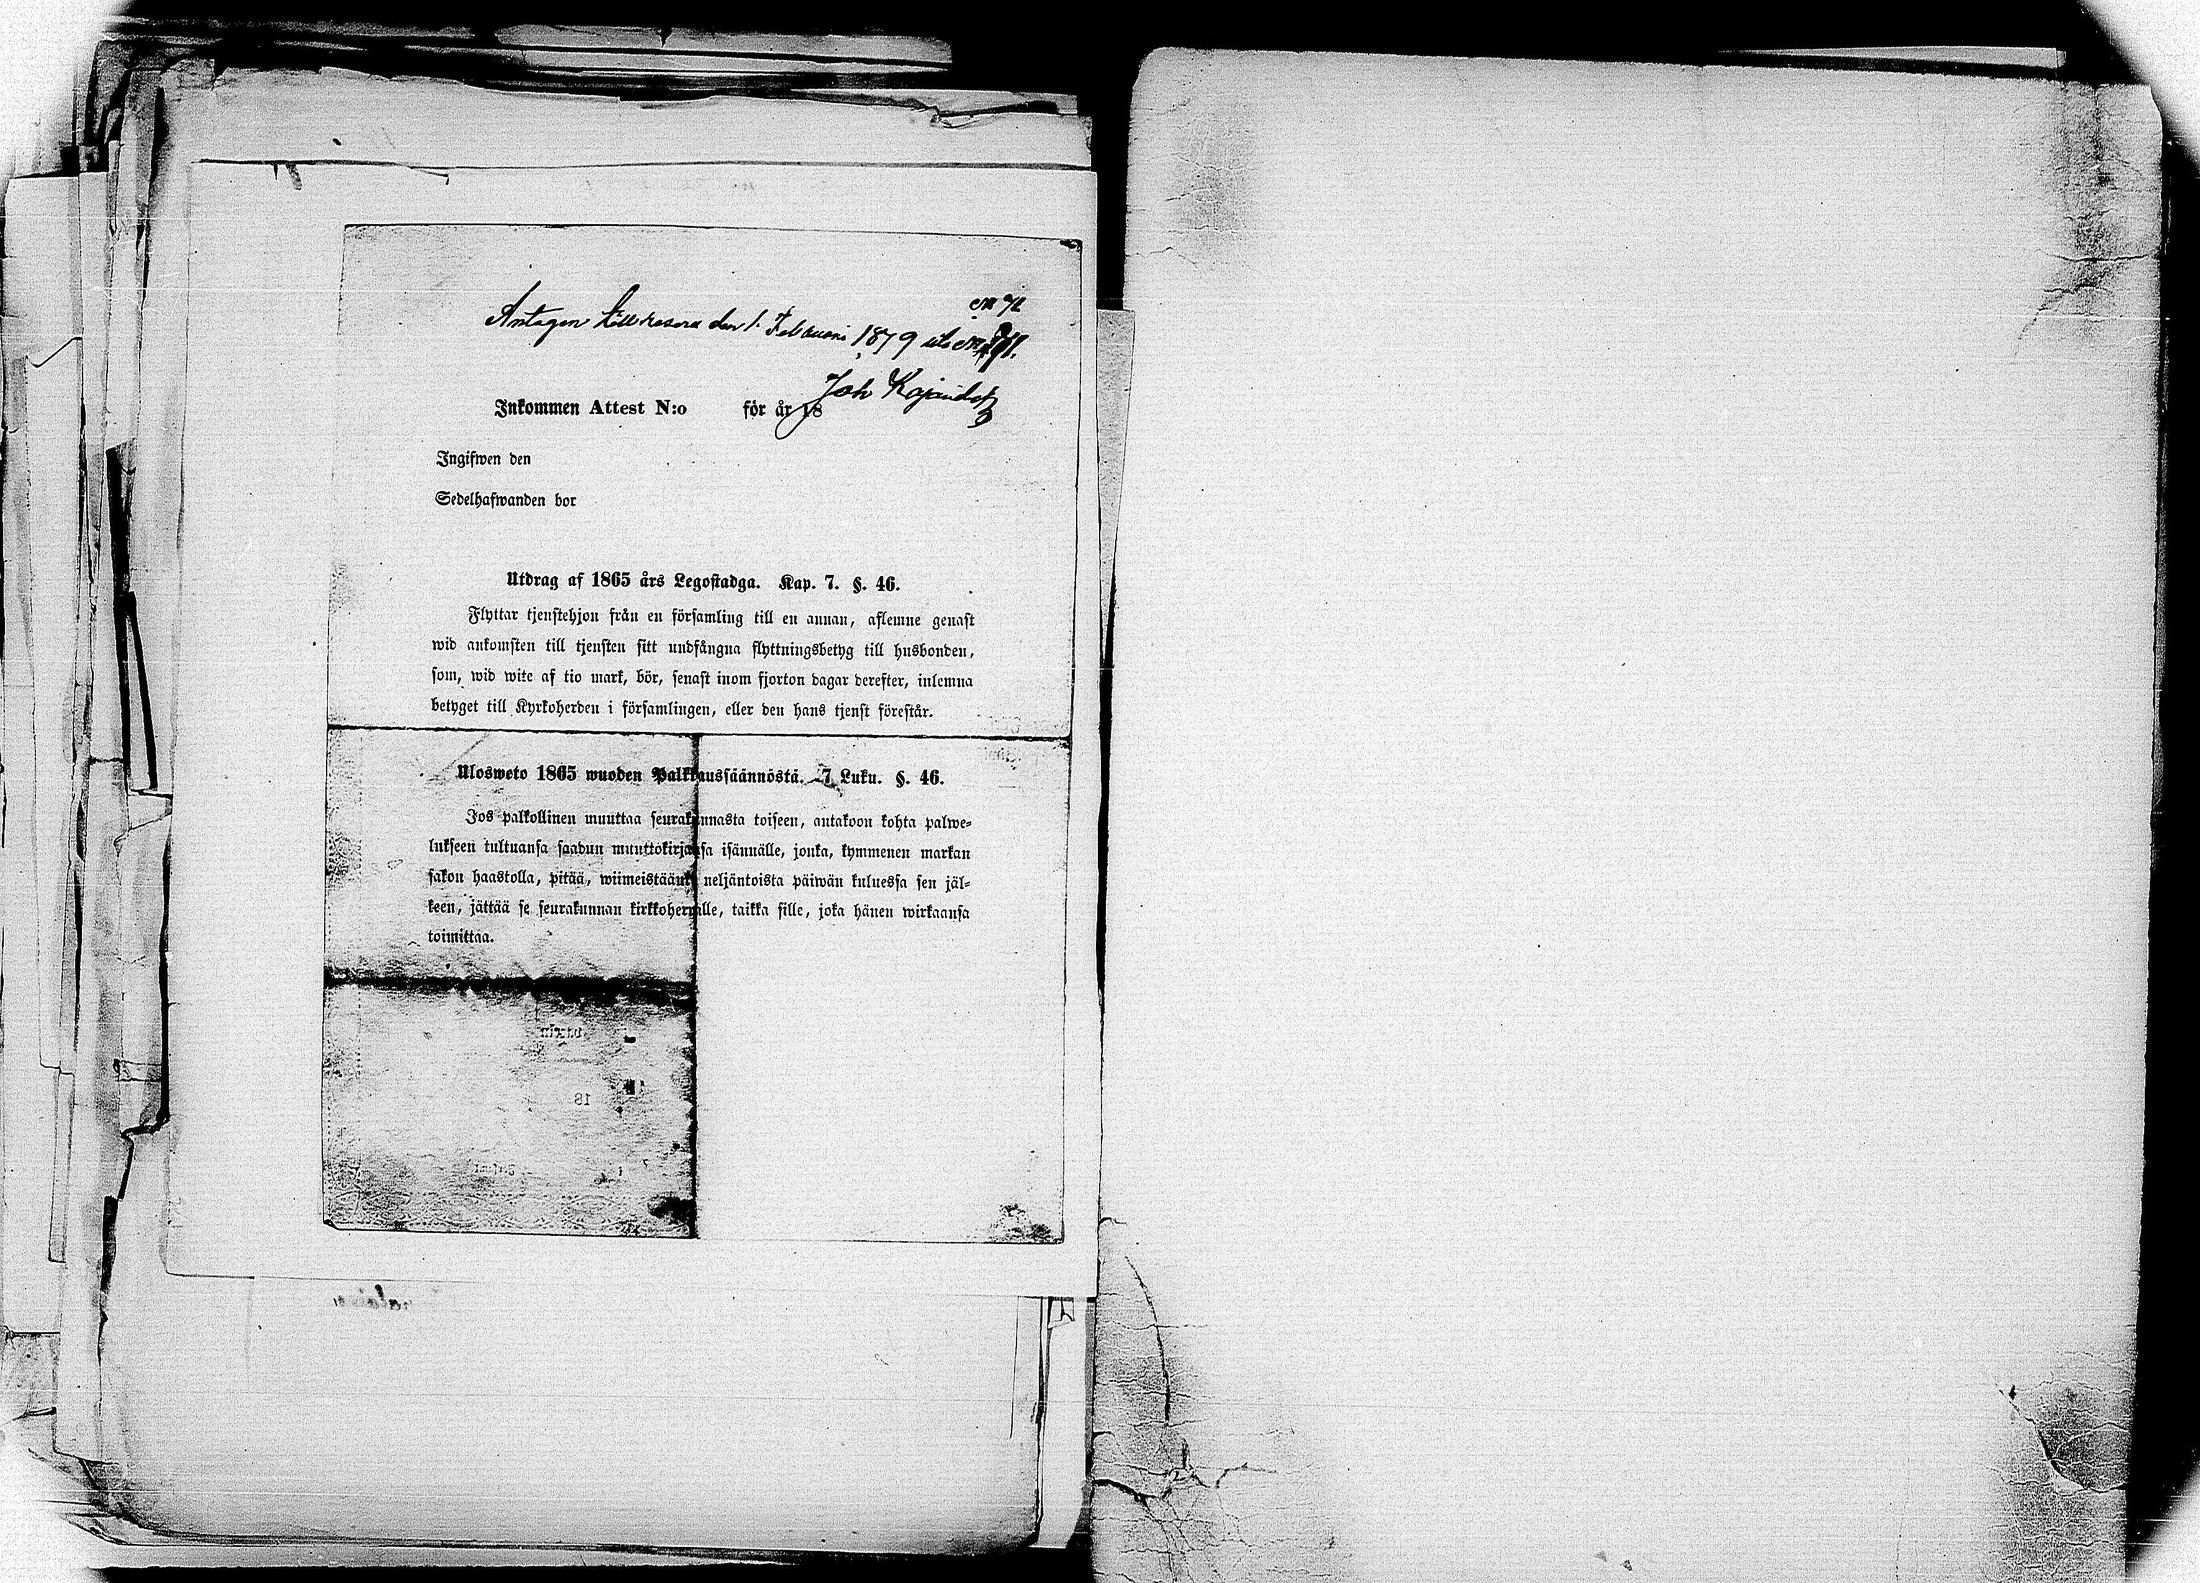 № 72
Antagen till reserv den 1. Februari 1879 uti №
Joh Kajand
Inkommen Attest N:o för år 18
Ingifwen den
Sedelhafwanden bor
Utdrag af 1865 års Legostadga. Kap. 7. §. 46.
Flyttar tjenstehjon från en församling till en annan, aflemne genast
wid ankomsten till tjensten sitt undfångna flyttningsbetyg till husbonden,
som, wid wite af tio mark, bör, senast inom fjorton dagar derefter, inlemna
betyget till Kyrkoherden i församlingen, eller den hans tjenst förestår.
Ulosweto 1865 wuoden Palkkaussäännöstä. 7 Luku. §. 46.
Jos palkollinen muuttaa seurakunnasta toiseen, antakoon kohta palwe=
lukseen tultuansa saadun muuttokirjansa isännälle, jonka, kymmenen markan
sakon haastolla, pitää, wiimeistäänki neljäntoista päiwän kuluessa sen jäl=
keen, jättää se seurakunnan kirkkoherralle, taikka sille, joka hänen wirkaansa
toimittaa.
18